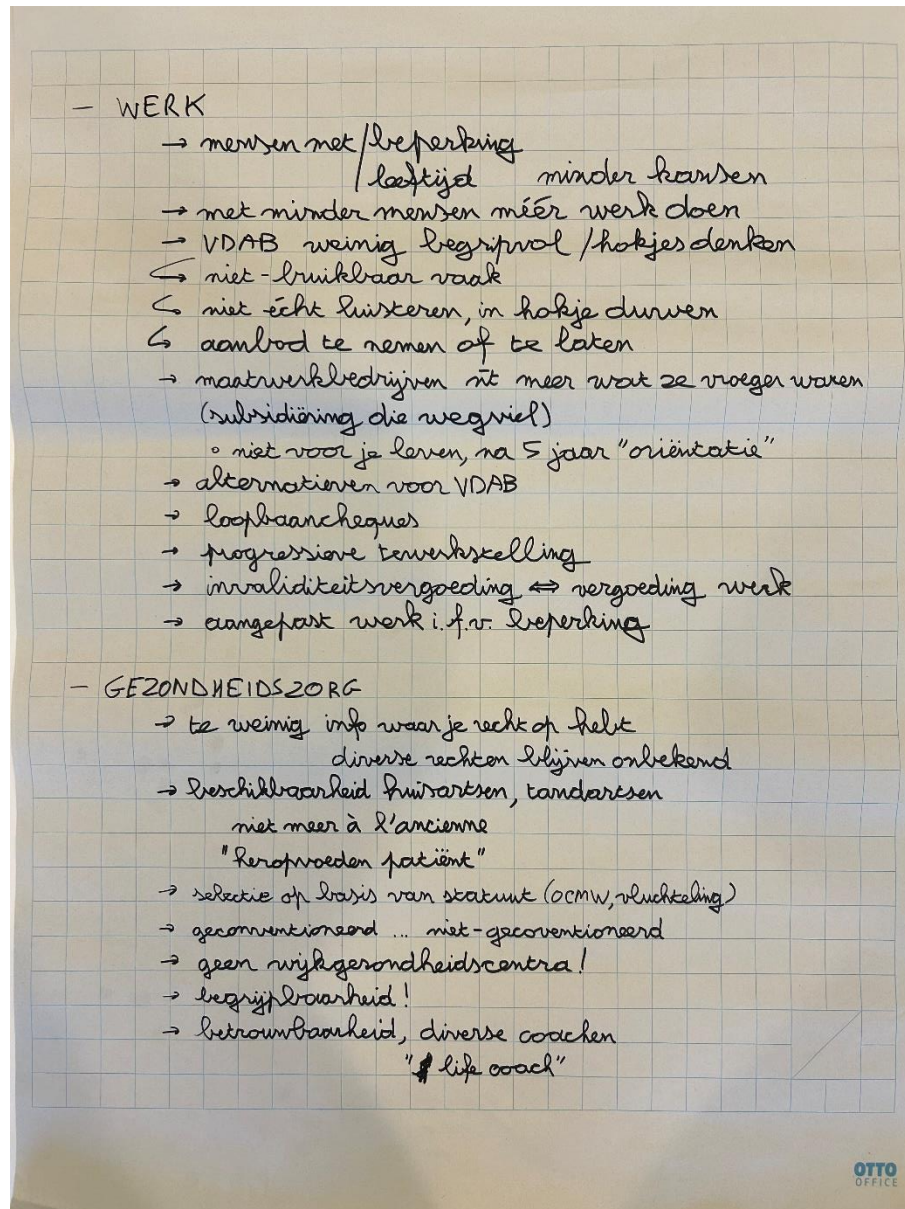 - WERK
→ mensen met / beperking
/ leeftijd minder kansen
→ met minder mensen méér werk doen
→ VDAB weinig begripvol / hokjesdenken
↪ niet-bruikbaar vaak
↪ niet écht luisteren, in hokje duwen
↪ aanbod te nemen of te laten
→ maatwerkbedrijven nt meer wat ze vroeger waren
(subsidiëring die wegviel)
° niet voor je leven, na 5 jaar "oriëntatie"
→ alternatieven voor VDAB
→ loopbaancheques
→ progressieve tewerkstelling
→ invaliditeitsvergoeding ⇔ vergoeding werk
→ aangepast werk i.f.v. beperking
- GEZONDHEIDSZORG
→ te weinig info waar je recht op hebt
diverse rechten blijven onbekend
→ beschikbaarheid huisartsen, tandartsen
niet meer à l'ancienne
"heropvoeden patiënt"
→ selectie op basis van statuut (OCMW, vluchteling)
→ geconventioneerd ... niet-gecoventioneerd
→ geen wijkgezondheidscentra!
→ begrijpbaarheid!
→ betrouwbaarheid, diverse coachen
"life coach"
OTTO
OFFICE